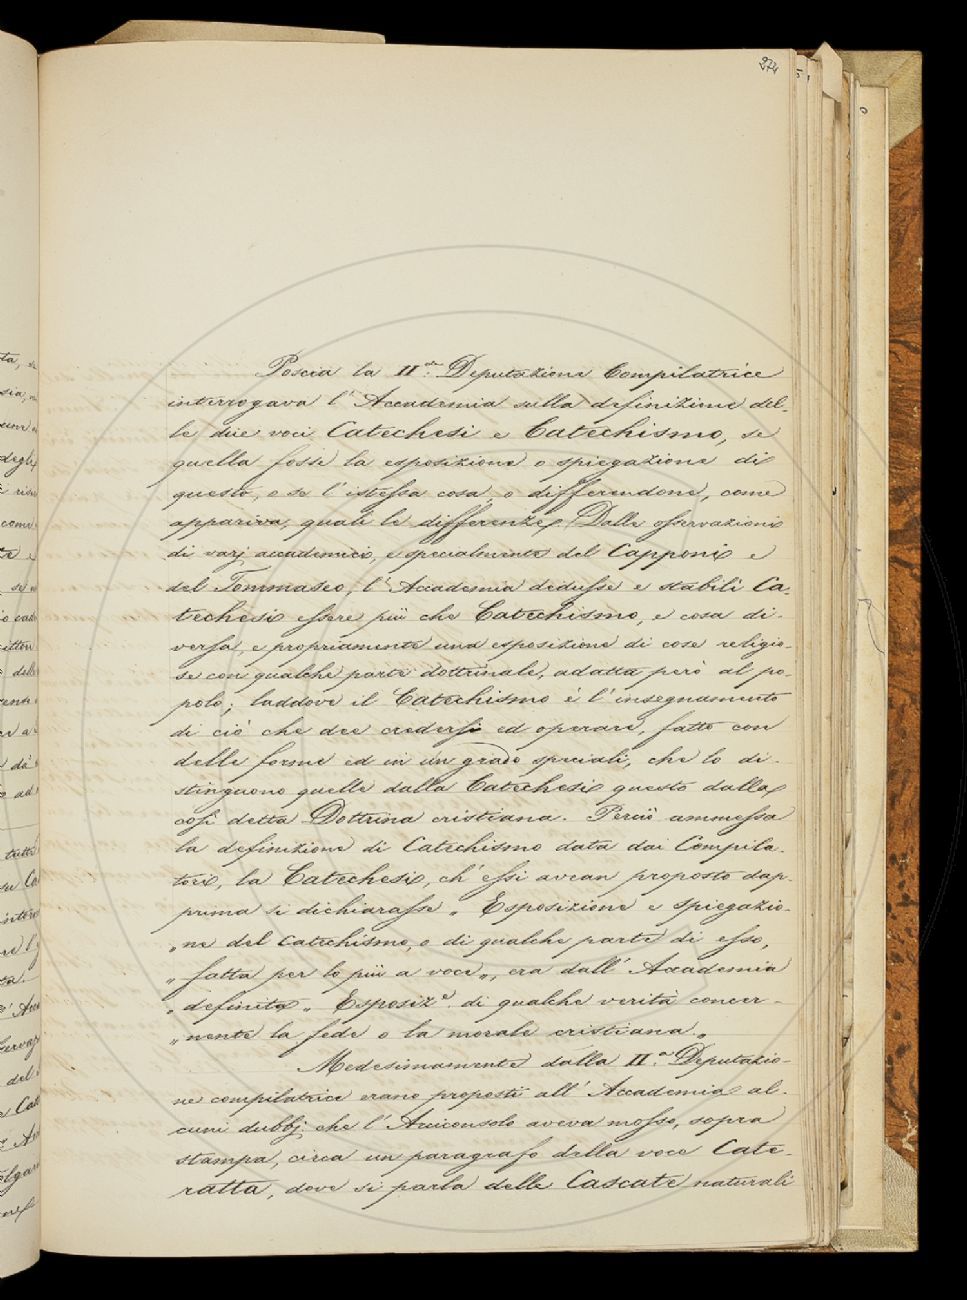 274
Poscia la II.da Deputazione Compilatrice
interrogava l'Accademia sulla definizione del-
le due voci Catechesi e Catechismo, se
quella fosse la esposizione o spiegazione di
questo, o se l'istessa cosa, o differendone, come
appariva, quali le differenze. Dalle osservazioni
di varj accademici, e specialmente del Capponi e
del Tommaseo, l'Accademia dedusse e stabilì Ca-
techesi essere più che Catechismo, e cosa di-
versa, e propriamente una esposizione di cose religio-
se con qualche parte dottrinale, adatta però al po-
polo; laddove il Catechismo è l'insegnamento
di ciò che dee credersi ed operare, fatto con
delle forme ed in un grado speciali, che lo di-
stinguono quelle dalla Catechesi questo dalla
così detta Dottrina cristiana. Perciò ammessa
la definizione di Catechismo data dai Compila-
tori, la Catechesi, ch'essi avean proposto dap-
prima si dichiarasse „ Esposizione e spiegazio-
„ne del Catechismo, o di qualche parte di esso,
„ fatta per lo più a voce„, era dall'Accademia
„ definita „ Esposiz.e di qualche verità concer-
„nente la fede o la morale cristiana.„
Medesimamente dalla II.a Deputazio-
ne compilatrice erano proposti all'Accademia al-
cuni dubbj che l'Arciconsolo aveva mosso, sopra
stampa, circa un paragrafo della voce Cate-
ratta, dove si parla delle Cascate naturali